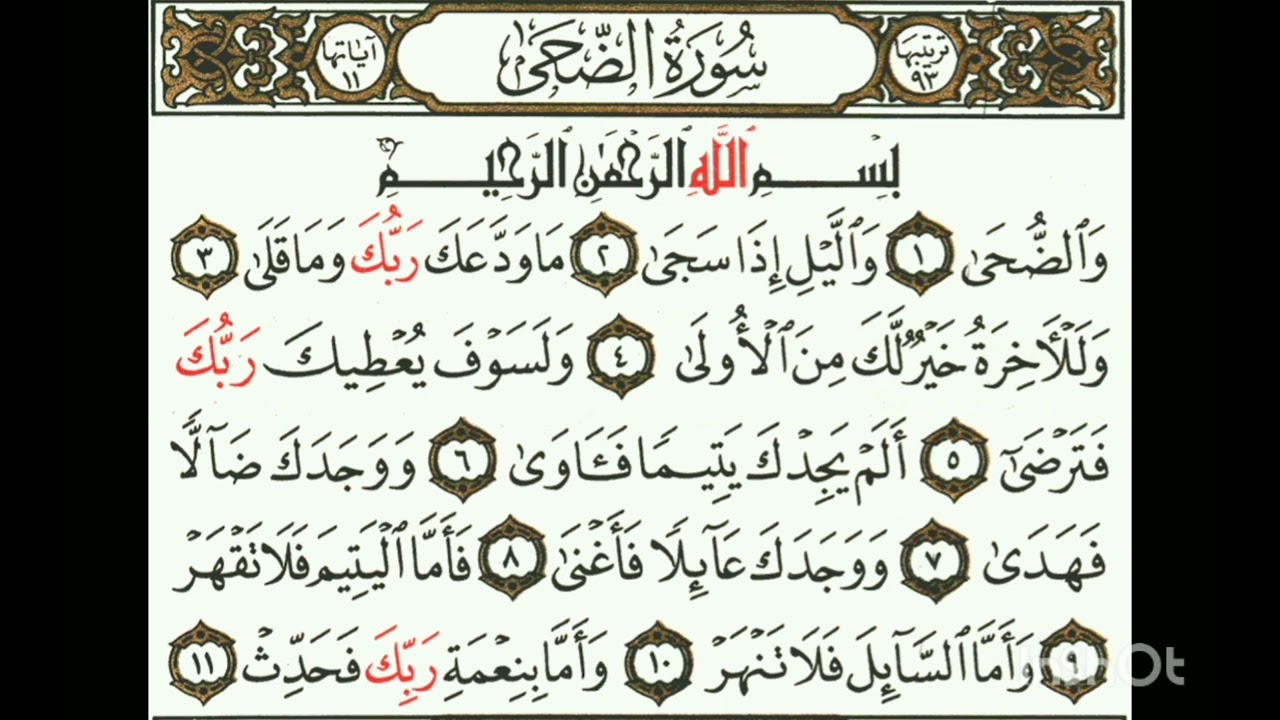 InShOt
ترتيبها ٩٣ سُورَةُ الضُّحَىٰ آياتها ١١
بِسْمِ ٱللَّهِ ٱلرَّحْمَٰنِ ٱلرَّحِيمِ
وَٱلضُّحَىٰ ١ وَٱلَّيْلِ إِذَا سَجَىٰ ٢ مَا وَدَّعَكَ رَبُّكَ وَمَا قَلَىٰ ٣
وَلَلْأَخِرَةُ خَيْرٌ لَّكَ مِنَ ٱلْأُولَىٰ ٤ وَلَسَوْفَ يُعْطِيكَ رَبُّكَ
فَتَرْضَىٰٓ ٥ أَلَمْ يَجِدْكَ يَتِيمًا فَـَٔاوَىٰ ٦ وَوَجَدَكَ ضَآلًّا
فَهَدَىٰ ٧ وَوَجَدَكَ عَآئِلًا فَأَغْنَىٰ ٨ فَأَمَّا ٱلْيَتِيمَ فَلَا تَقْهَرْ
٩ وَأَمَّا ٱلسَّآئِلَ فَلَا تَنْهَرْ ١٠ وَأَمَّا بِنِعْمَةِ رَبِّكَ فَحَدِّثْ ١١
InShOt